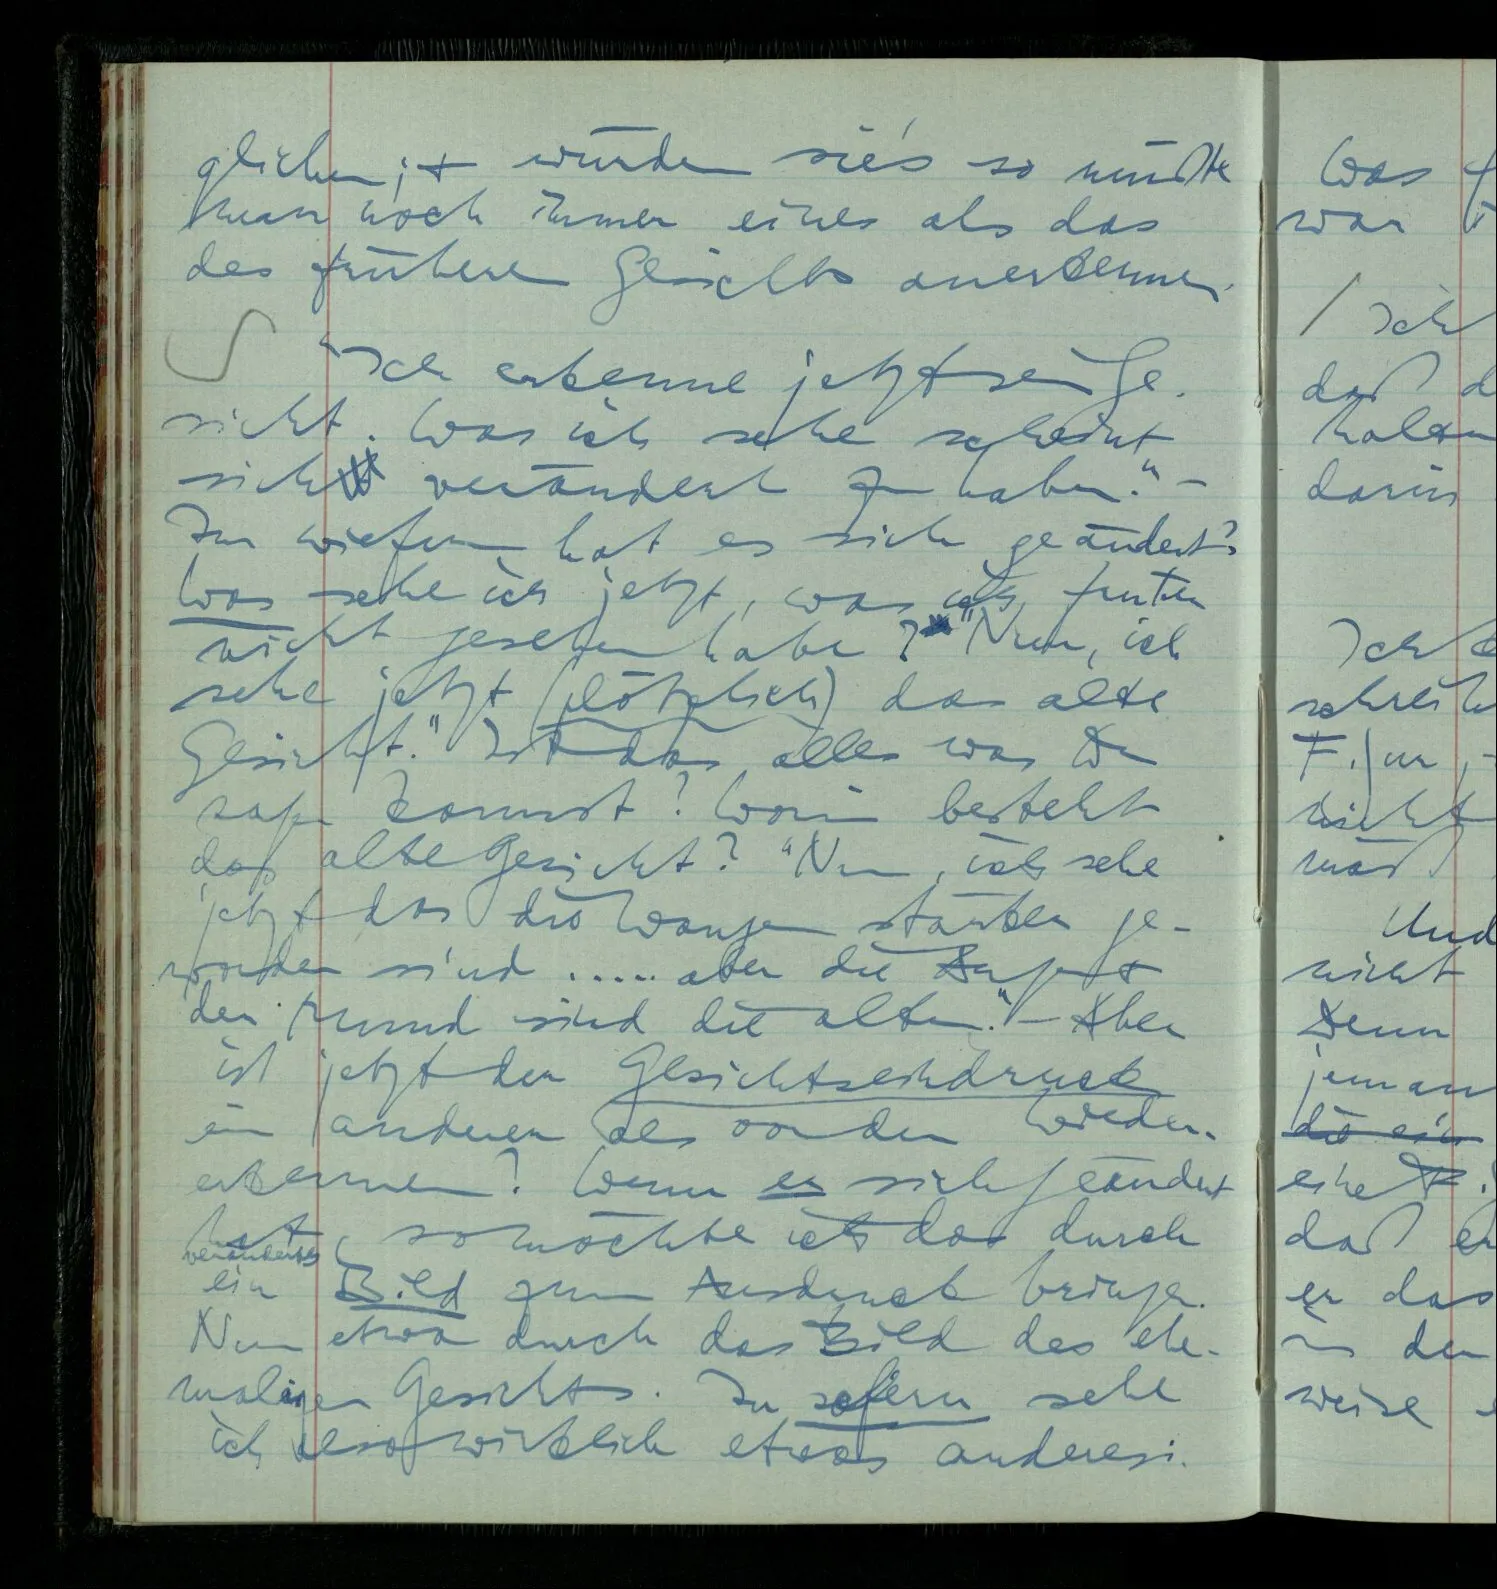 glichen; & würden sie's so müßte
man noch immer eines als das
des frühere Gesichts anerkennen.
∫ "Ich erkenne jetzt sein Ge-
sicht. Was ich sehe scheint
sich verändert zu haben." –
In wiefern hat es sich geändert?
Was sehe ich jetzt, was ich früher
nicht gesehen habe? "Nun, ich
sehe jetzt (plötzlich) das alte
Gesicht." Ist das alles was Du
sagen kannst? Worin besteht
das alte Gesicht? "Nun, ich sehe
jetzt das die Wangen stärker ge-
worden sind ..... aber die Augen &
der Mund sind die alten." – Aber
ist jetzt der Gesichtseindruck
ein anderer als vor dem Wieder-
erkennen? Wenn er sich geändert
hat, so möchte ich das durch
verändertes
ein Bild zum Ausdruck bringen.
Nun etwa durch das Bild des ehe-
maligen Gesichts. In sofern sehe
ich also wirklich etwas anderes.
Was
war
/ Ich
daß d
halten
darin
Ich
schreib
F.
nicht
Und
nicht
Denn
jeman
die ein
eine F.
daß er
er das
in der
weise